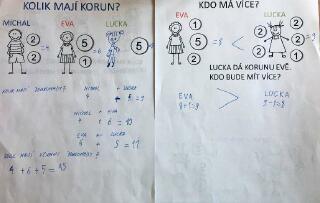 KOLIK MAJÍ KORUN?
MICHAL EVA LUCKA
2 2 =4
1 5 =6
5 =5
KOLIK MAJÍ DOHROMADY?
MICHAL + LUCKA
4 5 = 9
MICHAL + EVA
4 + 6 = 10
EVA + LUCKA
6 + 5 = 11
KOLIK MAJÍ VŠICHNI DOHROMADY?
4 + 6 + 5 = 15
KDO MÁ VÍCE?
EVA LUCKA
1 5 2 =8 < 2 1 2 2 2 =9
LUCKA DÁ KORUNU EVĚ.
KDO BUDE MÍT VÍCE?
EVA > LUCKA
8+1=9 9-1=8